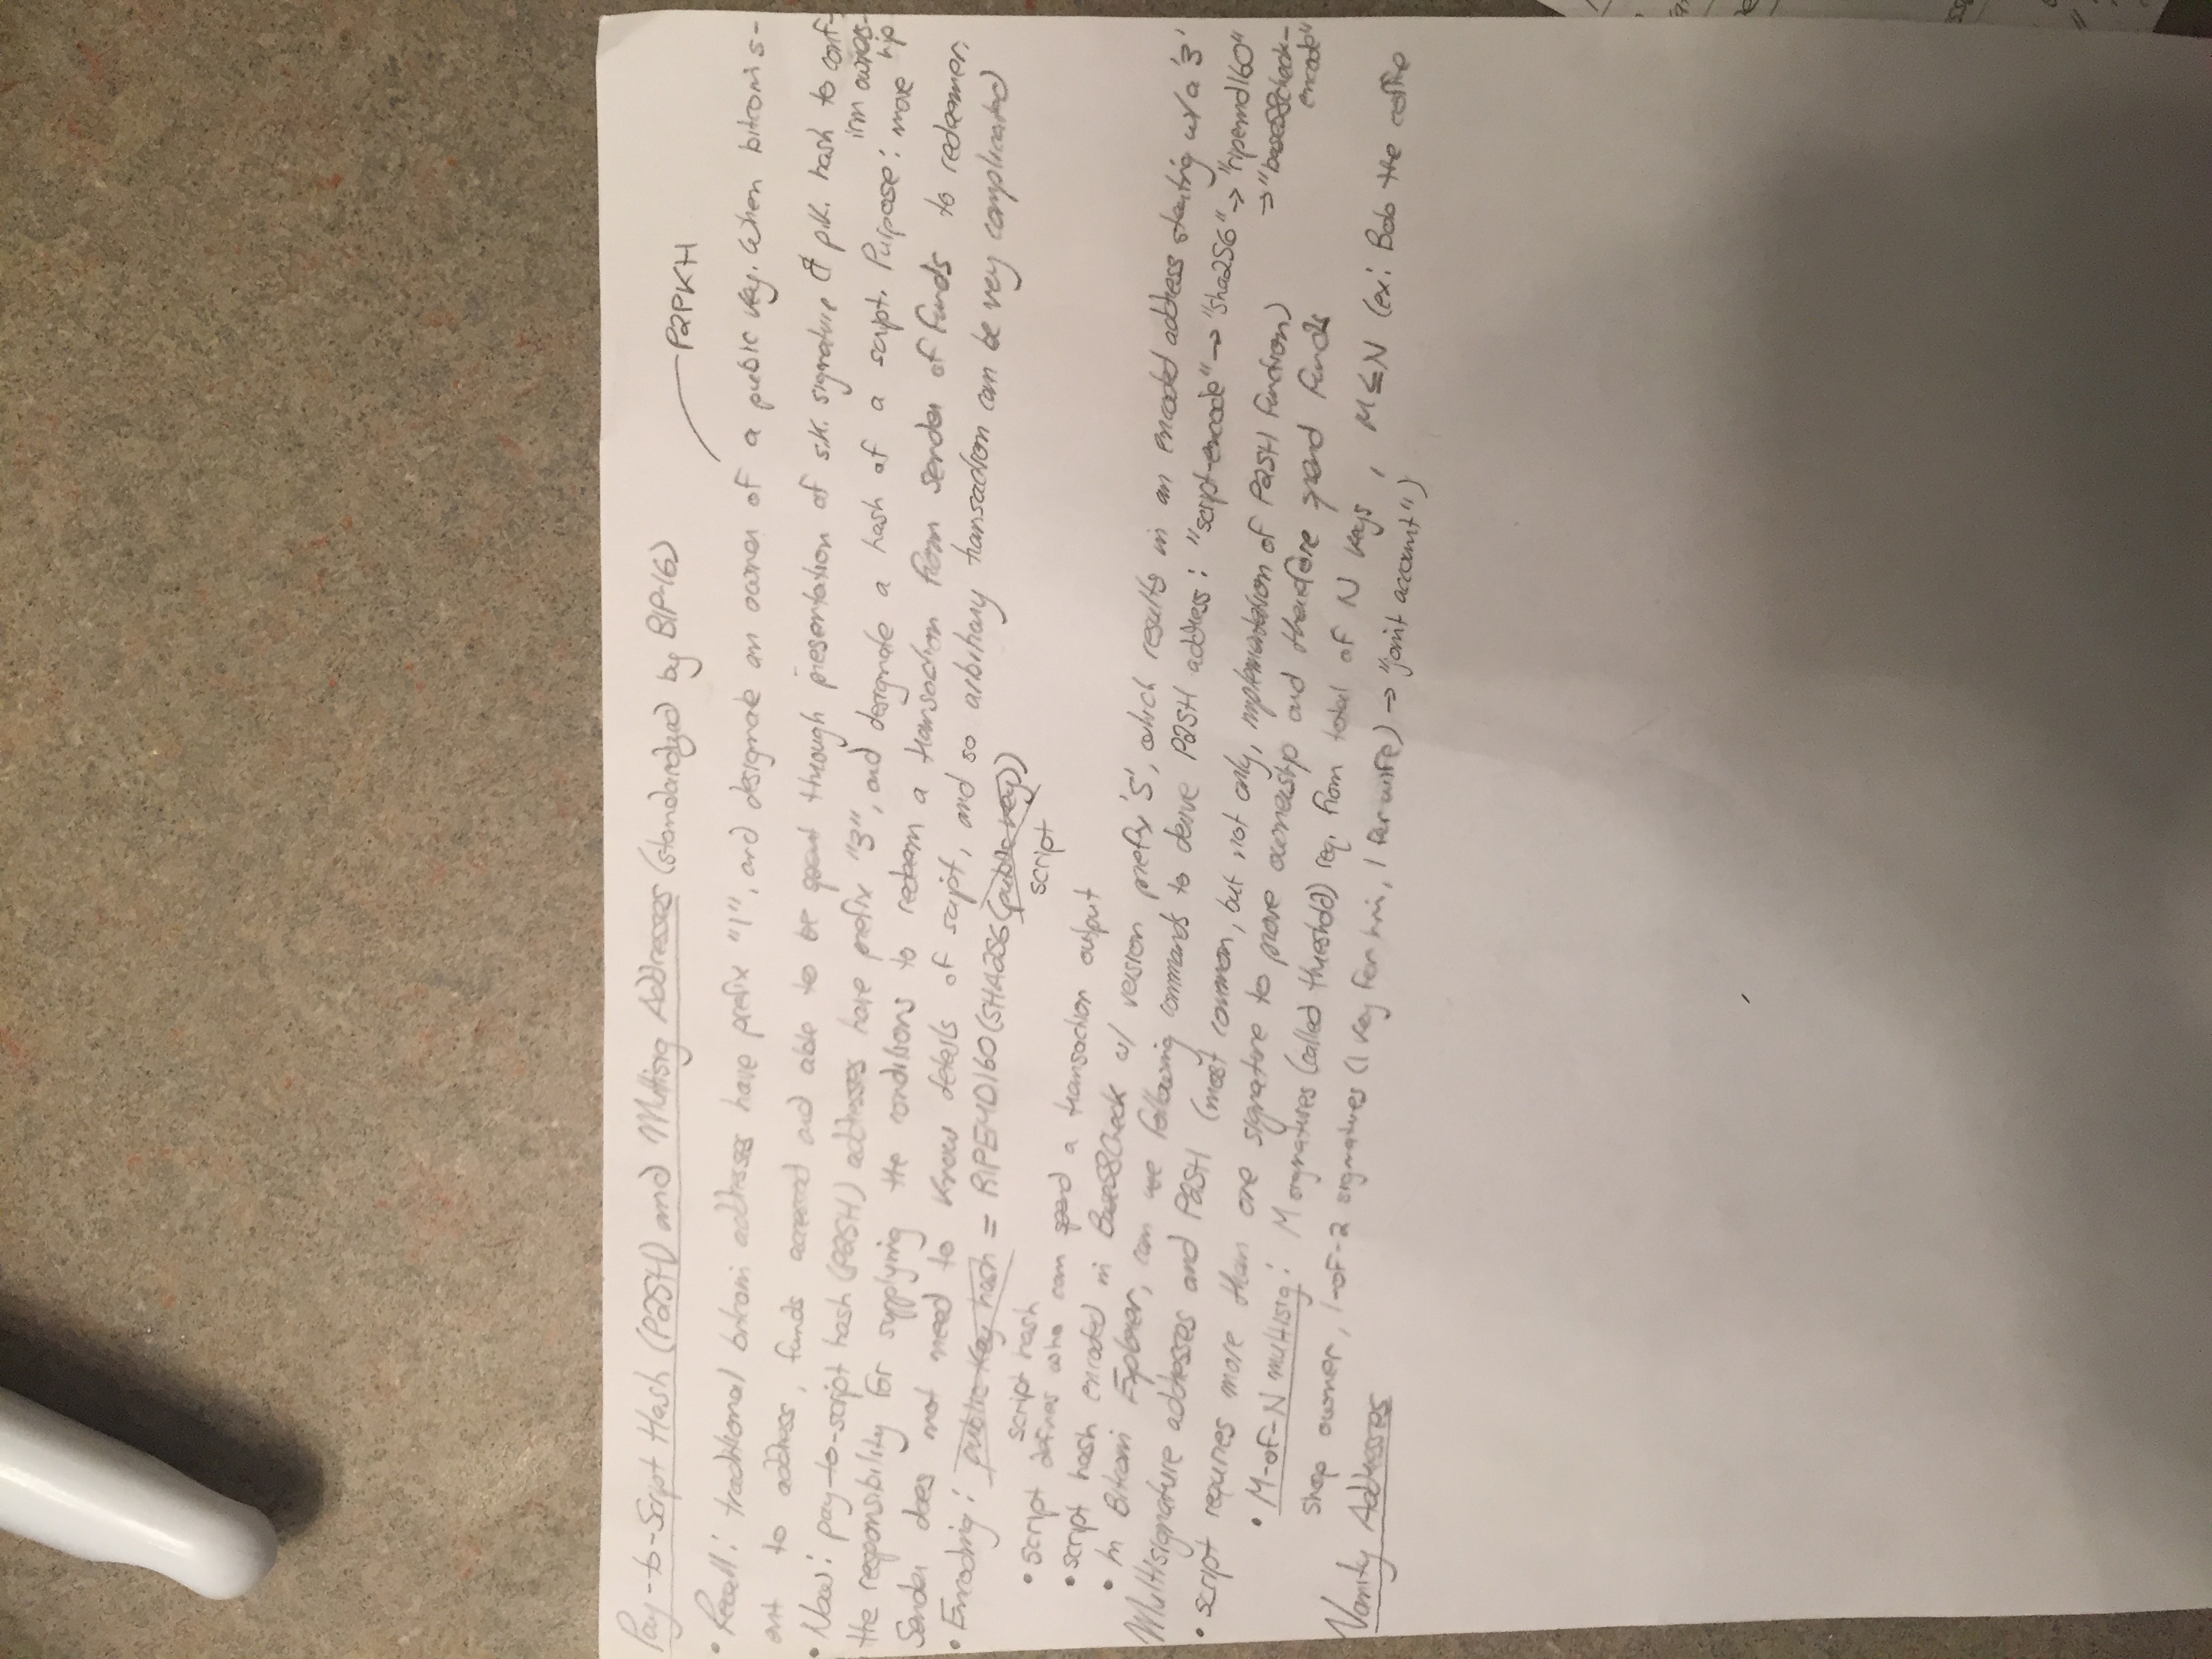 Pay-to-Script Hash (P2SH) and Multisig Addresses (standardized by BIP-16)
P2PKH
• Recall: traditional bitcoin addresses have prefix "1", and designate an owner of a public key. When bitcoin is s-
ent to address, funds accessed and able to be spent through presentation of s.k. signature & p.k. hash to conf-
irm owners-
hip
• Now: pay-to-script hash (P2SH) addresses have prefix "3", and designate a hash of a script. Purpose: move
the responsibility for supplying the conditions to redeem a transaction from sender of funds to redeemer.
Sender does not need to know details of script, and so arbitrary transaction can be very complicated
• Encoding: public key hash = RIPEMD160(SHA256(public key))
script hash
script
• script defines who can spend a transaction output
• script hash encoded in Base58Check w/ version prefix '5', which results in an encoded address starting w/ a '3'
• In Bitcoin Explorer, can use following commands to derive P2SH address: "script-encode" → "sha256" → "ripemd160"
→ "base58check-
encode"
Multisignature addresses and P2SH (most common, but not only, implementation of P2SH function)
• script requires more than one signature to prove ownership and therefore spend funds
• M-of-N multisig: M signatures (called threshold) req. from total of N keys, M≤N (ex: Bob the coffee
shop owner, 1-of-2 signatures (1 key for him, 1 for wife) → "joint account")
Vanity Addresses